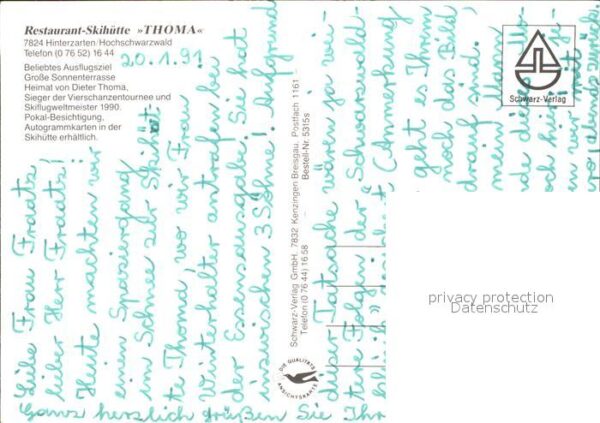 Restaurant-Skihütte »THOMA«
7824 Hinterzarten/Hochschwarzwald
Telefon (0 76 52) 16 44
20.1.91
Beliebtes Ausflugsziel
Große Sonnenterrasse
Heimat von Dieter Thoma,
Sieger der Vierschanzentournee und
Skiflugweltmeister 1990.
Pokal-Besichtigung,
Autogrammkarten in der
Skihütte erhältlich.
Liebe Frau Fraatz,
lieber Herr Fraatz!
Heute machten wir
einen Spaziergang
im Schnee zur Skihüt-
te Thoma, wo wir Frau
Winterhalter antrafen bei
der Essensausgabe. Sie hat
inzwischen 3 Söhne! Aufgrund
dieser Tatsache wären ja wei-
tere Folgen der "Schwarzwald-
(Anmerkung
geht es Ihnen
doch das Bild
drauf sind.
mein Mann
und
wir
Ganz herzlich grüßen Sie Ihr
Schwarz-Verlag GmbH, 7832 Kenzingen Breisgau, Postfach 1161
Telefon (0 76 44) 16 58
Bestell-Nr. 5315s
DIE QUALITÄTS
ANSICHTSKARTE
Schwarz-Verlag
privacy protection
Datenschutz